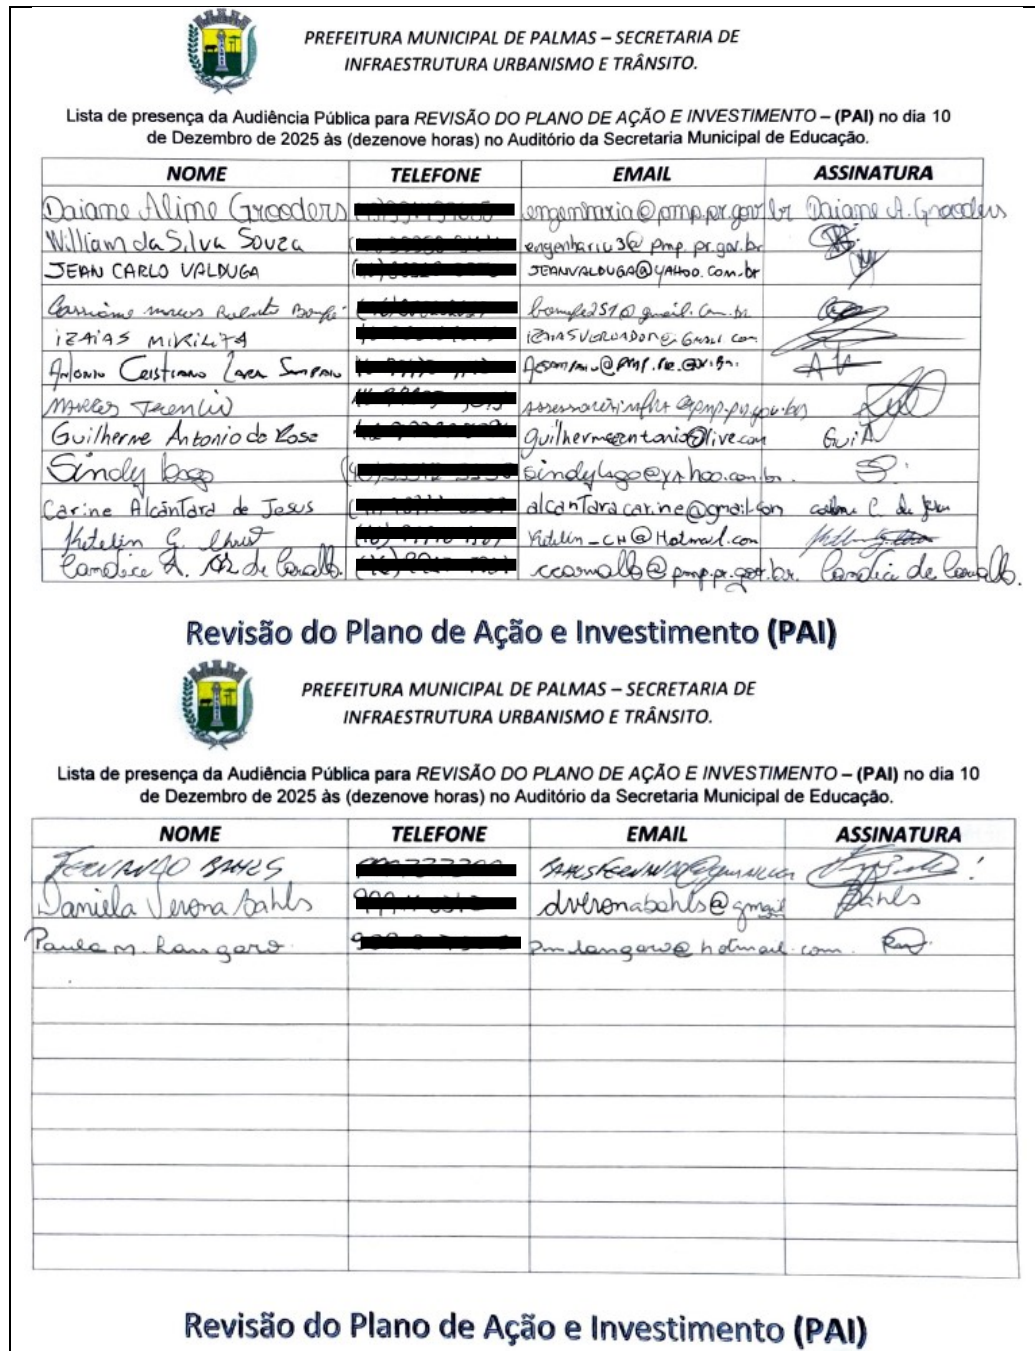 PREFEITURA MUNICIPAL DE PALMAS – SECRETARIA DE
INFRAESTRUTURA URBANISMO E TRÂNSITO.
Lista de presença da Audiência Pública para REVISÃO DO PLANO DE AÇÃO E INVESTIMENTO – (PAI) no dia 10
de Dezembro de 2025 às (dezenove horas) no Auditório da Secretaria Municipal de Educação.
NOME TELEFONE EMAIL ASSINATURA
Daiane Aline Grooders engenharia@pmp.pr.gov.br Daiane A. Grooders
William da Silva Souza engenharia3@pmp.pr.gov.br
JEAN CARLO VALDUGA JEANVALDUGA@YAHOO.com.br
Marcos
IZAIAS MIKILITA
Antonio Cristiano Lara Sampaio
Marcos Terencio
Guilherme Antonio da Rosa guilhermeantonio@live.com GuiA
Sindy Lago sindylago@yahoo.com.br.
Carine Alcântara de Jesus alcantaracarine@gmail.com
Ketelin G. Ketelin_CH@Hotmail.com
Candice A. de Carvalho. ccarvalho@pmp.pr.gov.br. Candice de Carvalho.
Revisão do Plano de Ação e Investimento (PAI)
PREFEITURA MUNICIPAL DE PALMAS – SECRETARIA DE
INFRAESTRUTURA URBANISMO E TRÂNSITO.
Lista de presença da Audiência Pública para REVISÃO DO PLANO DE AÇÃO E INVESTIMENTO – (PAI) no dia 10
de Dezembro de 2025 às (dezenove horas) no Auditório da Secretaria Municipal de Educação.
NOME TELEFONE EMAIL ASSINATURA
FERNANDO BAHLS
Daniela Verona Bahls dveronabahls@gmail Bahls
Paula M. Langaro. pmlangaro@hotmail.com.
Revisão do Plano de Ação e Investimento (PAI)